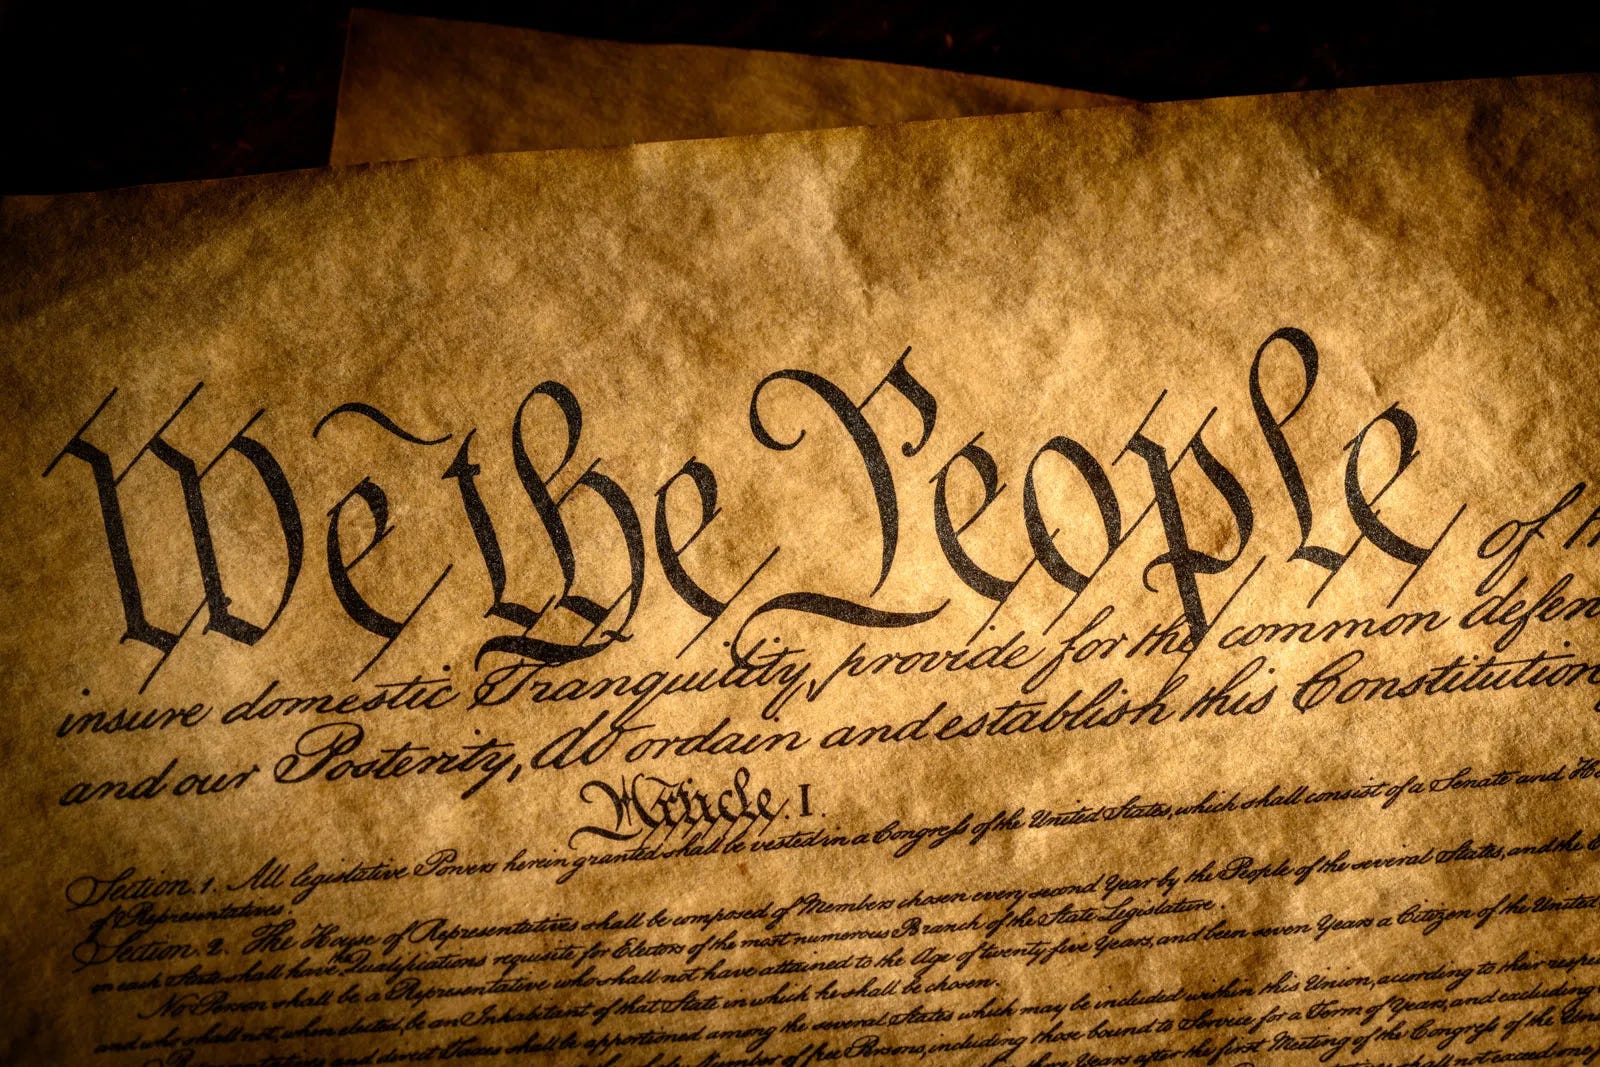 We the People of
insure domestic Tranquility, provide for the common defen
and our Posterity, do ordain and establish this Constitution
Article. I.
Section. 1. All legislative Powers herein granted shall be vested in a Congress of the United States, which shall consist of a Senate and Ho
of Representatives.
Section. 2. The House of Representatives shall be composed of Members chosen every second Year by the People of the several States, and the E
in each State shall have the Qualifications requisite for Electors of the most numerous Branch of the State Legislature.
No Person shall be a Representative who shall not have attained to the Age of twenty five Years, and been seven Years a Citizen of the United
and who shall not, when elected, be an Inhabitant of that State in which he shall be chosen.
Representatives and direct Taxes shall be apportioned among the several States which may be included within this Union, according to their respec
whole Number of free Persons, including those bound to Service for a Term of Years, and excluding
three Years after the first Meeting of the Congress of the Uni
shall not exceed one f